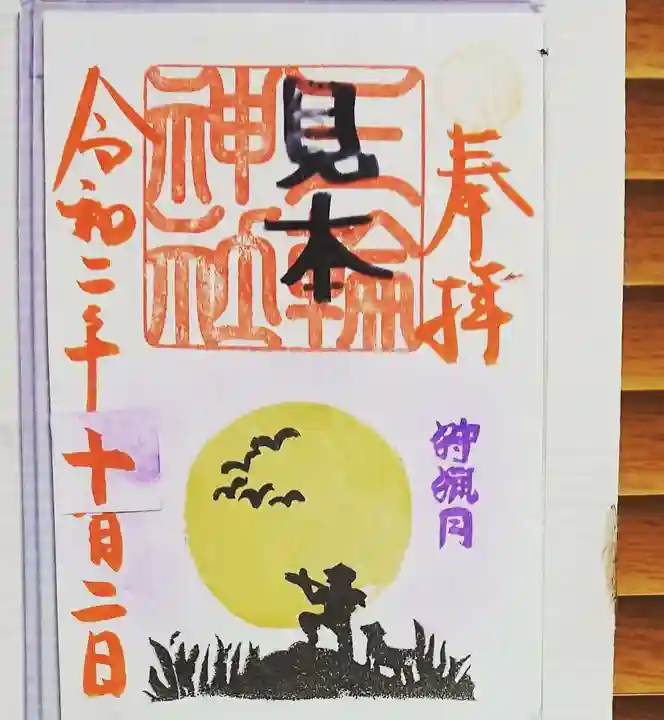 奉拝
狩猟月
三輪神社
見本
令和二年十月二日